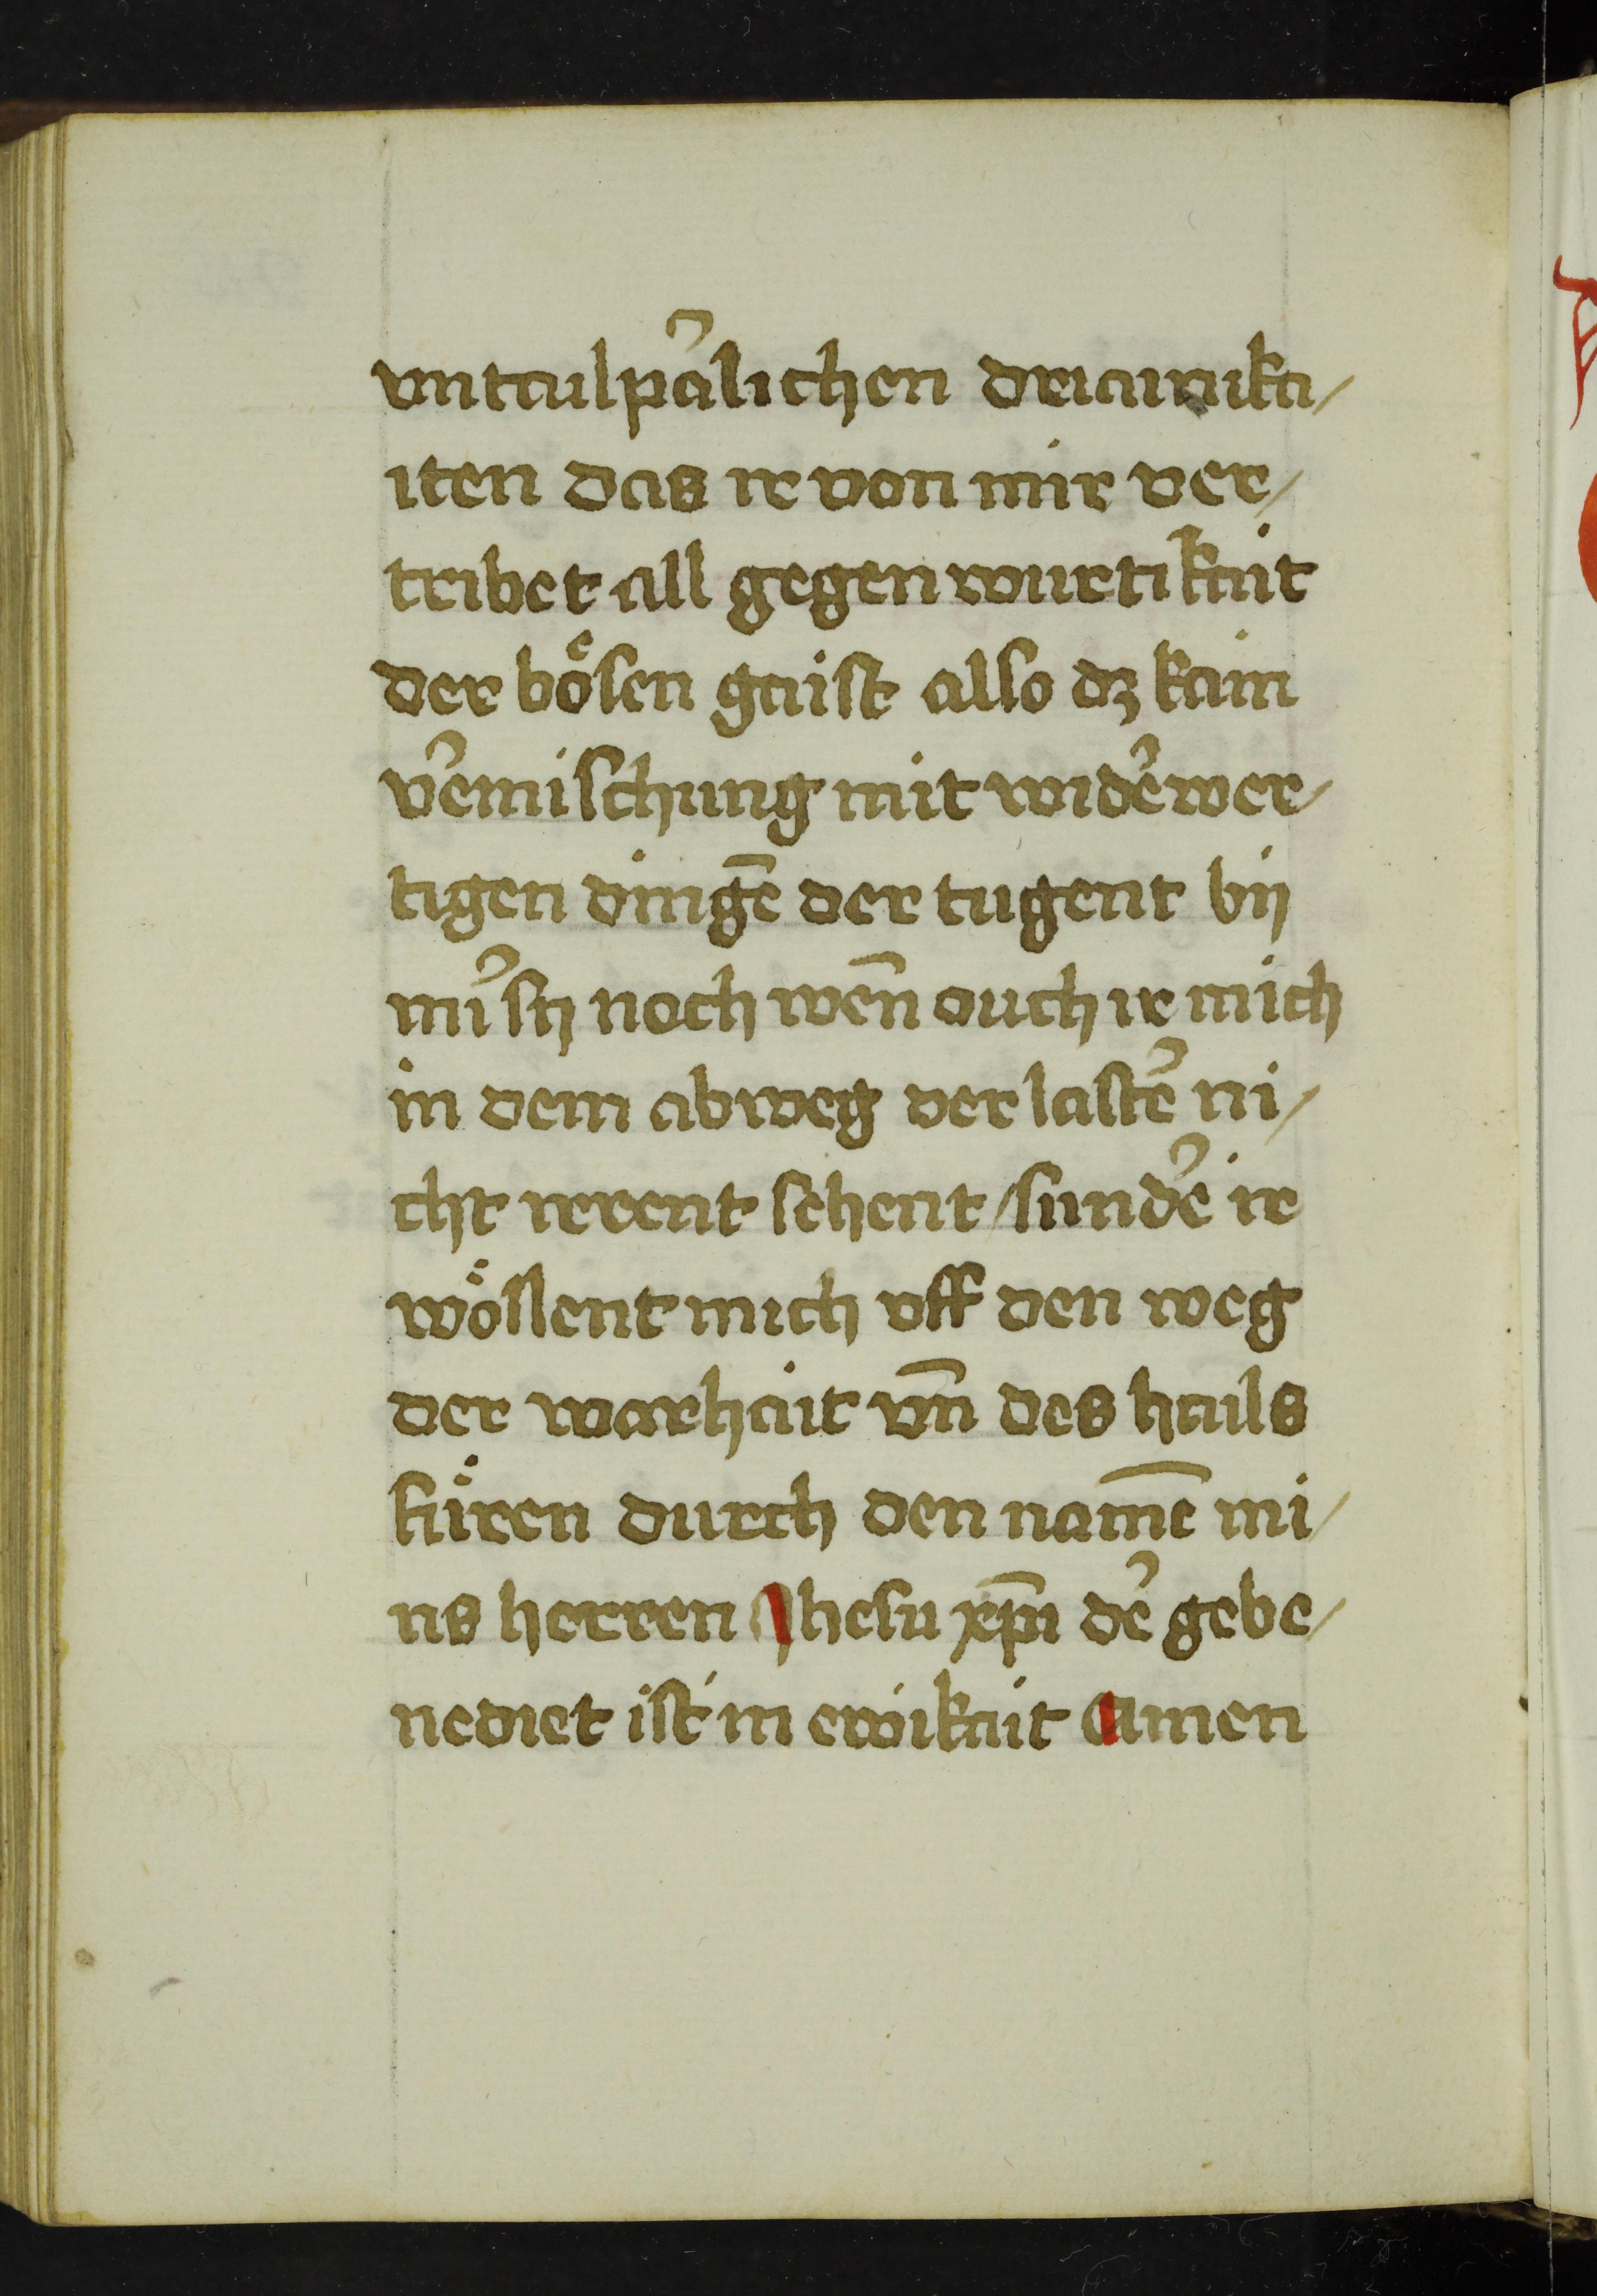 vntailpa᷑lichen driainika/
iten das ir von mir ver/
tribet all gegenwurtikait
der boͤsen gaist also dz kain
v᷑emischung mit wide᷑wer/
tigen dingē der tugent bij
mi᷑ sy noch wen̄ ouch ir mich
in dem abweg der laste᷑ ni/
cht irrent sehent / sunde᷑ ir
woͤllent mich vff den weg
der warhait vn̄ des hails
kaͤren durch den nam̄e mi/
ns herren Jhesu xp̄i de᷑ gebe/
nediet ist in ewikait Amen